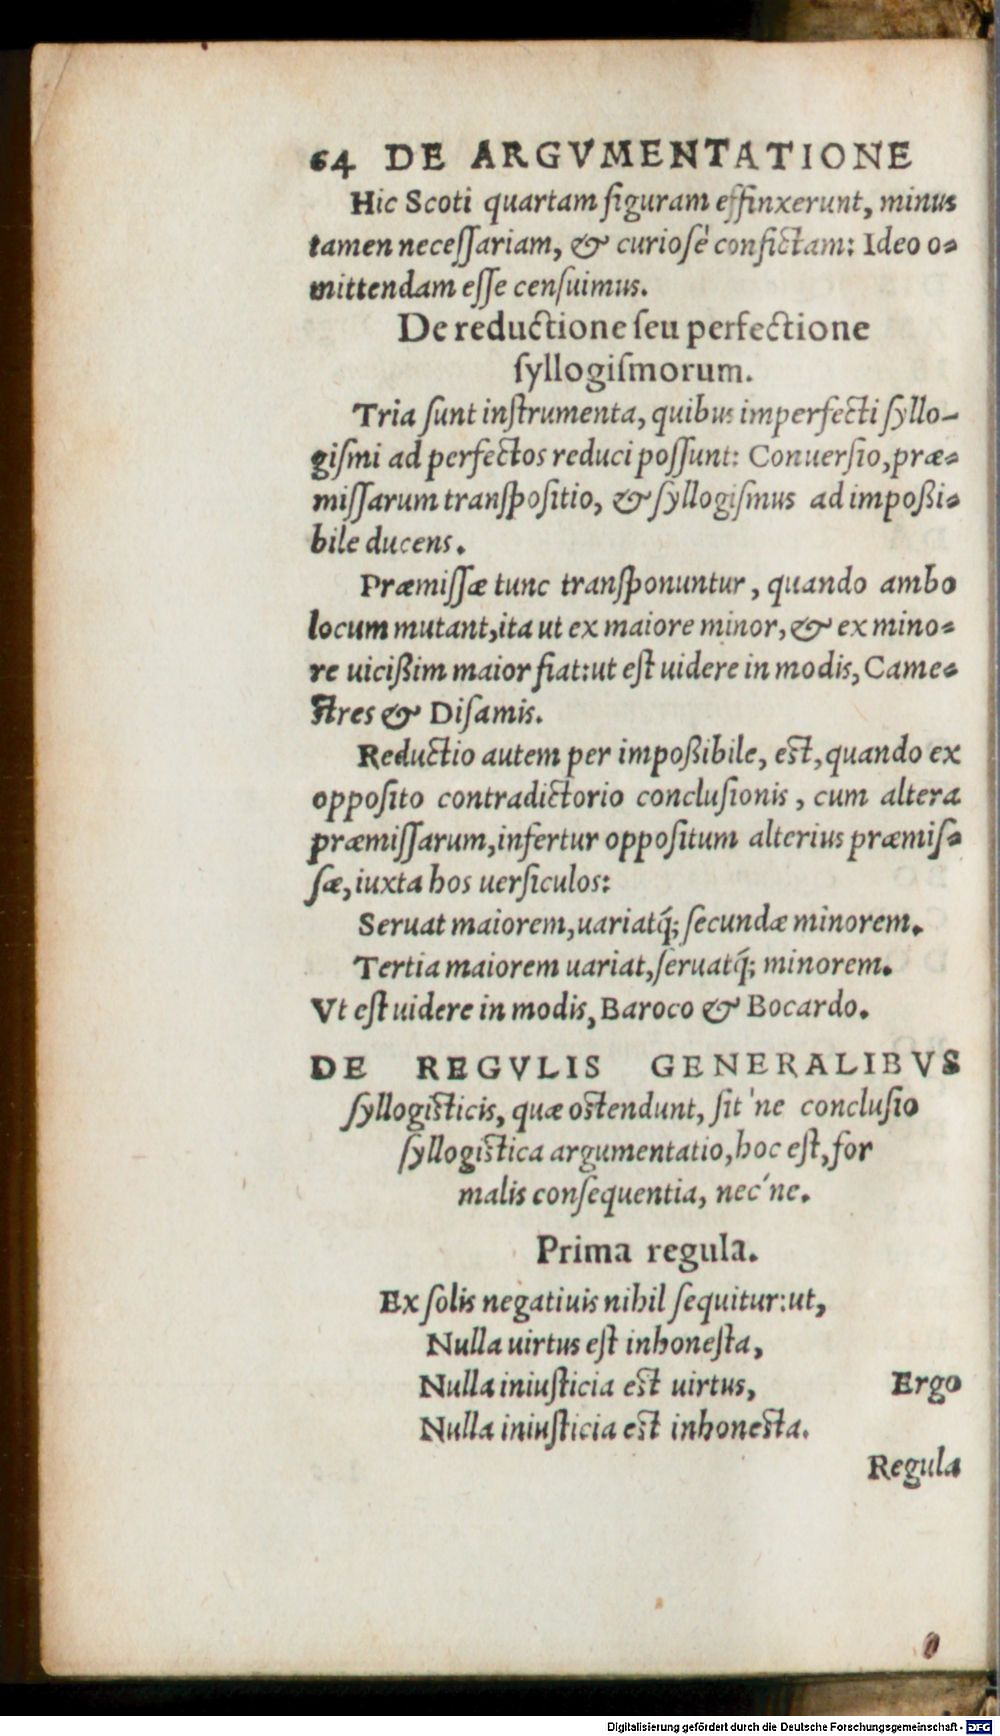 64 DE ARGVMENTATIONE
Hic Scoti quartam figuram effinxerunt, minus
tamen neceſſariam, & curioſè confictam: Ideo o-
mittendam eſſe cenſuimus.
De reductione ſeu perfectione
ſyllogiſmorum.
Tria ſunt inſtrumenta, quibus imperfecti ſyllo-
giſmi ad perfectos reduci poſſunt: Conuerſio, præ-
miſſarum tranſpoſitio, & ſyllogiſmus ad impoßi-
bile ducens.
Præmiſſæ tunc tranſponuntur, quando ambo
locum mutant, ita ut ex maiore minor, & ex mino-
re uicißim maior fiat: ut eſt uidere in modis, Came-
ſtres & Diſamis.
Reductio autem per impoßibile, eſt, quando ex
oppoſito contradictorio concluſionis, cum altera
præmiſſarum, infertur oppoſitum alterius præmiſ-
ſæ, iuxta hos uerſiculos:
Seruat maiorem, uariatq́; ſecundæ minorem.
Tertia maiorem uariat, ſeruatq́; minorem.
Vt eſt uidere in modis, Baroco & Bocardo.
DE REGVLIS GENERALIBVS
ſyllogiſticis, quæ oſtendunt, ſit'ne concluſio
ſyllogiſtica argumentatio, hoc eſt, for
malis conſequentia, nec'ne.
Prima regula.
Ex ſolis negatiuis nihil ſequitur: ut,
Nulla uirtus eſt inhoneſta,
Nulla iniuſticia eſt uirtus, Ergo
Nulla iniuſticia eſt inhoneſta.
Regula
Digitalisierung gefördert durch die Deutsche Forschungsgemeinschaft - DFG